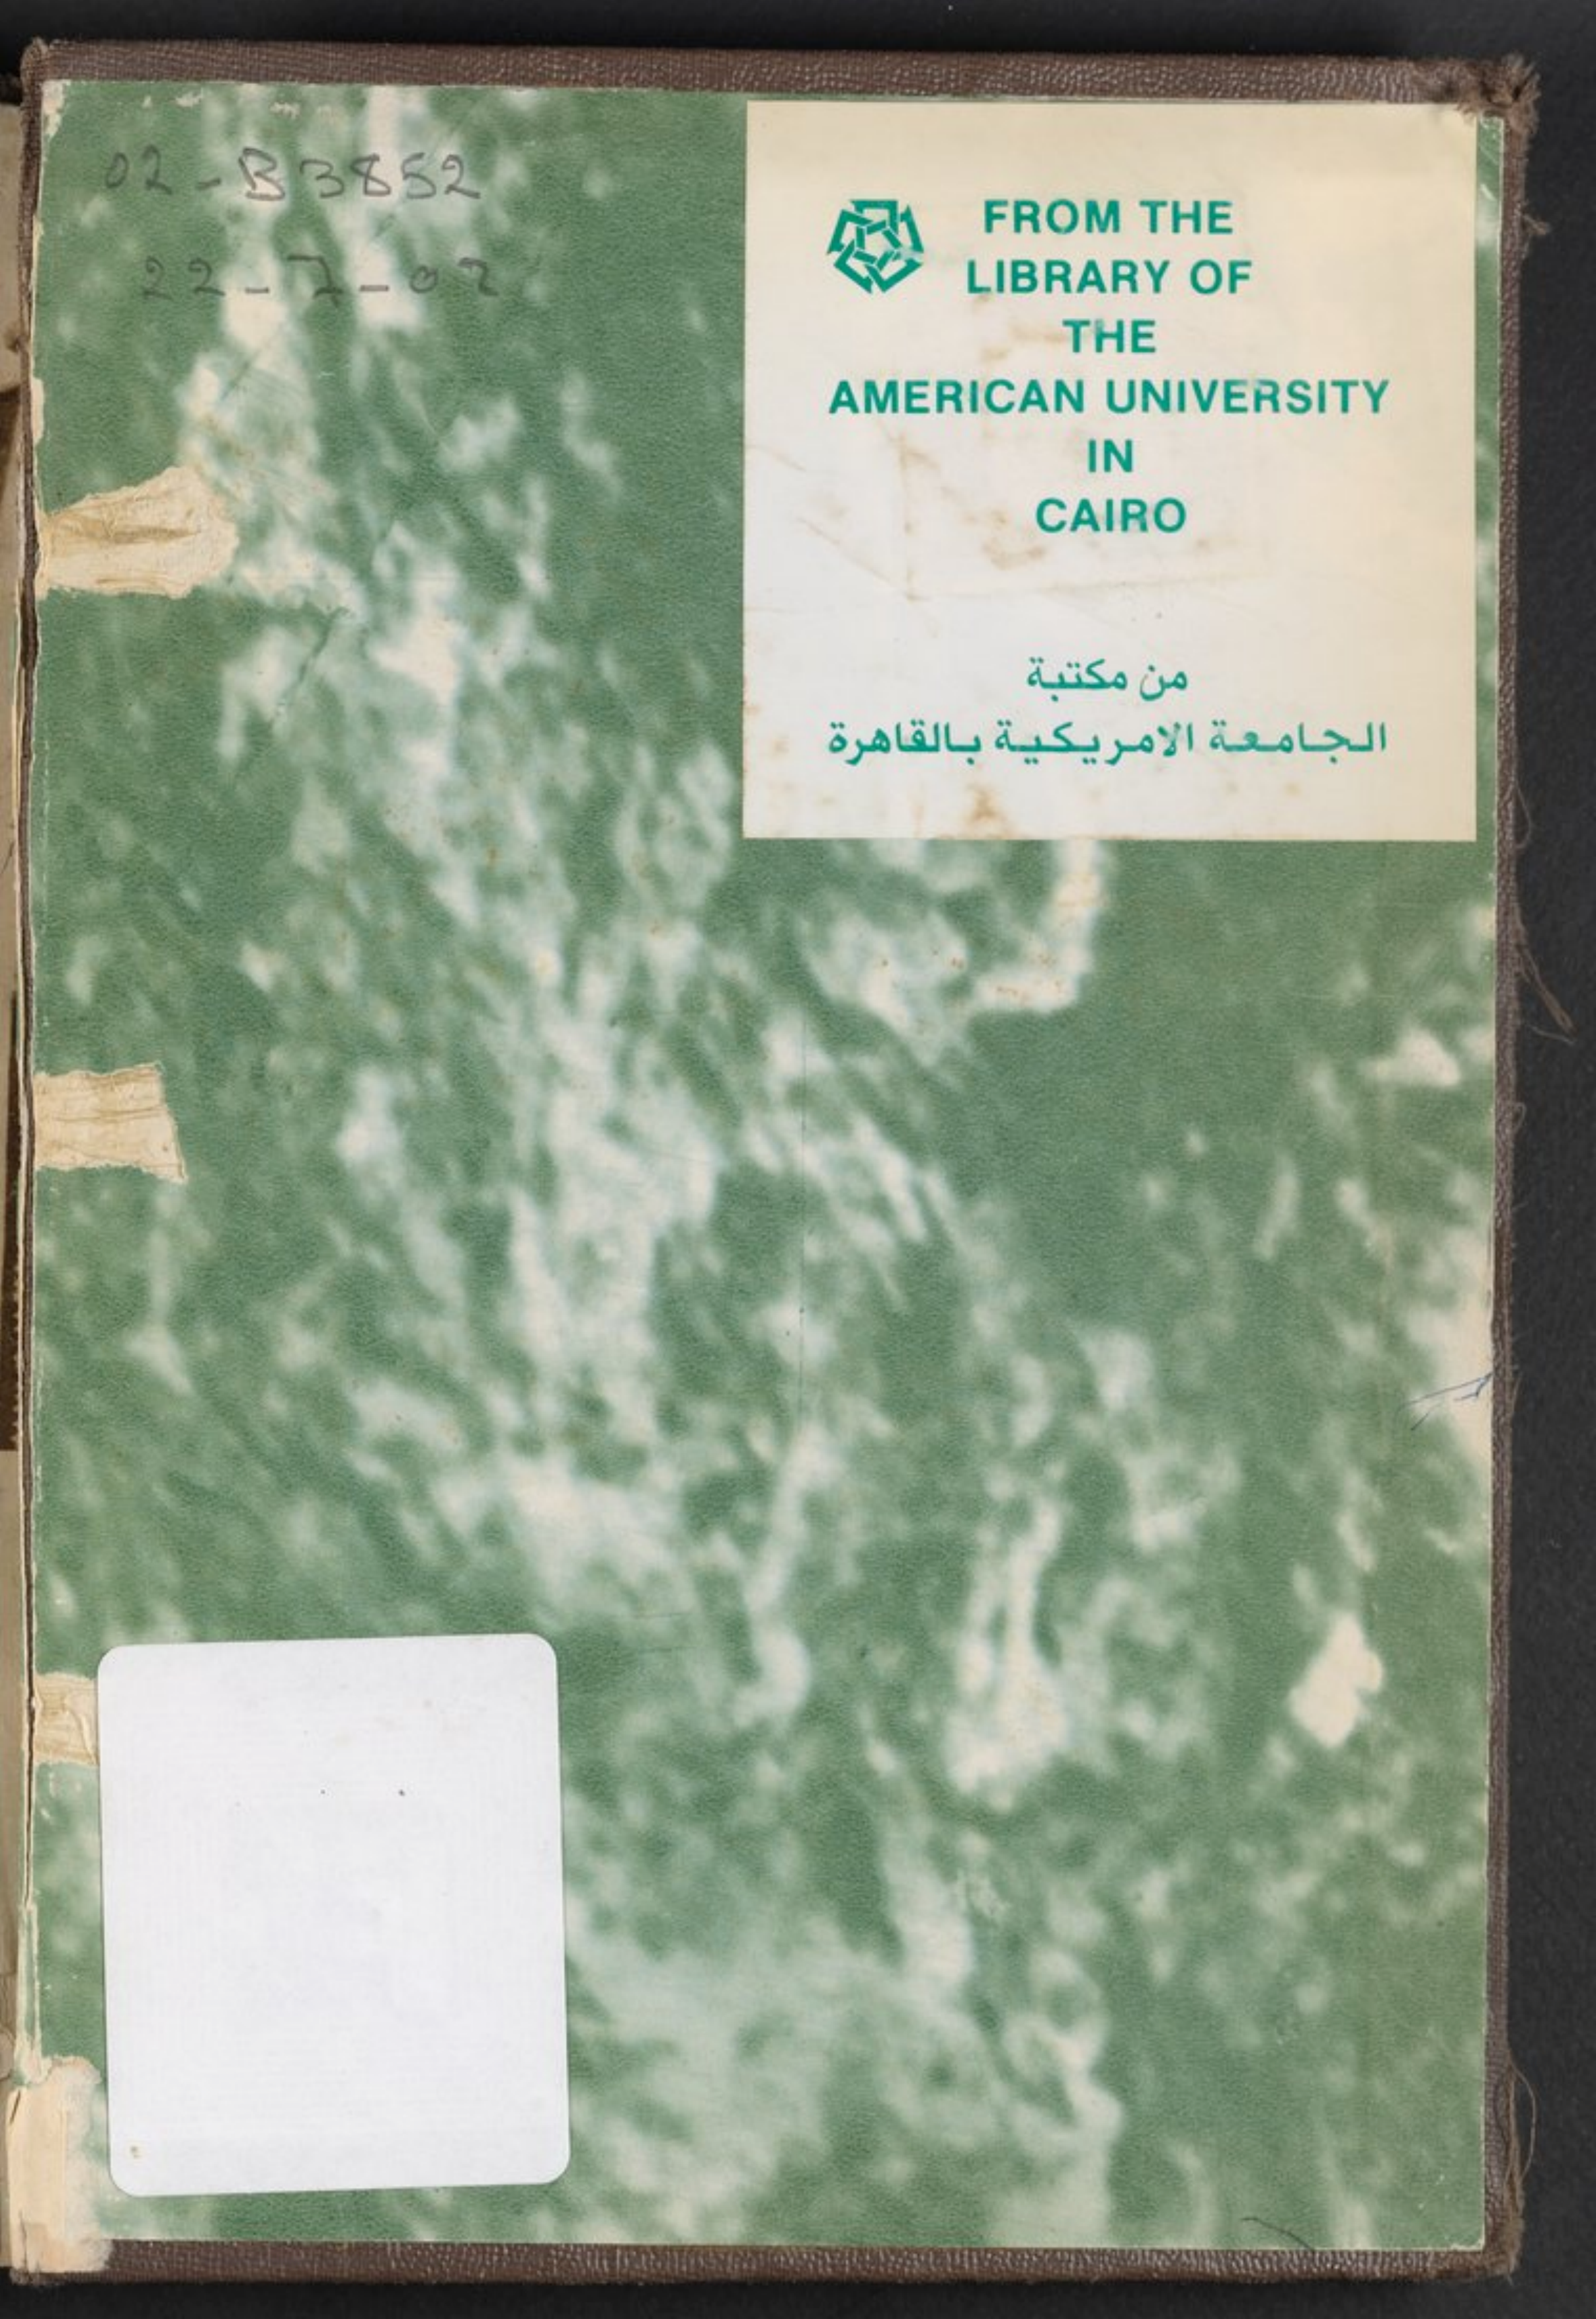 02-B3852
22-7-02
FROM THE
LIBRARY OF
THE
AMERICAN UNIVERSITY
IN
CAIRO
من مكتبة
الجامعة الامريكية بالقاهرة